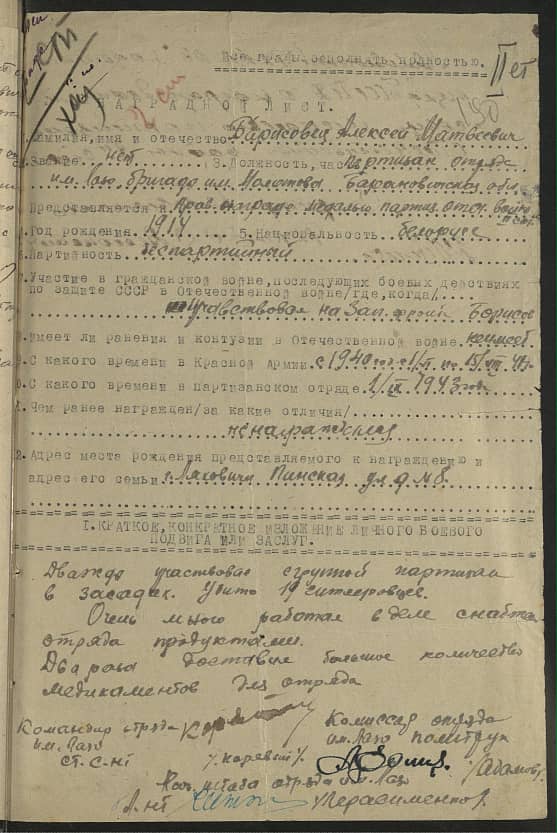 Все графы заполнять полностью.
II ст
НАГРАДНОЙ ЛИСТ.
1.Фамилия,имя и отчество Барисовец Алексей Матвеевич
2.Звание нет 3.Должность,часть партизан отряда
им. Лазо, бригада им. Молотова Барановичская обл.
Представляется к Прав. награде медалью партиз. отеч. войны
4.Год рождения 1914 5.Национальность белорус
6.Партийность беспартийный
7.Участие в гражданской войне,последующих боевых действиях
по защите СССР в Отечественной войне/где,когда/
участвовал на Зап. фронт Борисов
8.Имеет ли ранения и контузии в Отечественной войне неимеет
9.С какого времени в Красной Армии с 1940
10.С какого времени в партизанском отряде 1/IX 1943 года
11.Чем ранее награжден/за какие отличия/
ненаграждался
12.Адрес места рождения представляемого к награждению и
адрес его семьи г. Ляховичи Пинская ул д №8
I.КРАТКОЕ,КОНКРЕТНОЕ ИЗЛОЖЕНИЕ ЛИЧНОГО БОЕВОГО
ПОДВИГА ИЛИ ЗАСЛУГ.
Дважды участвовал с группой партизан
в засадах. Убито 19 гитлеровцев.
Очень много работал в деле снабжен.
отряда продуктами.
Два раза доставил большое количество
медикаментов для отряда
Командир отряда
им. Лазо
ст. с-нт /Каревый/
Комиссар отряда
им. Лазо политрук
/Адамов/
Нач. штаба отряда им. Лазо
Л. нт /Герасименко/